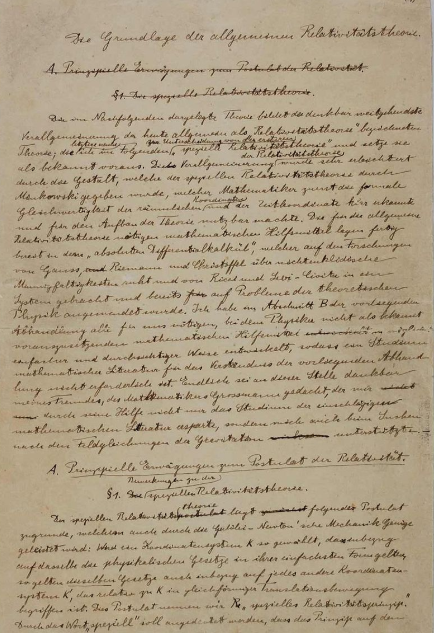 Die Grundlage der allgemeinen Relativitätstheorie.
A. Prinzipielle Erwägungen zum Postulat der Relativität.
§1. Die spezielle Relativitätstheorie.
Die im Nachfolgenden dargelegte Theorie bildet die denkbar weitgehendste
Verallgemeinerung der heute allgemein als "Relativitätstheorie" bezeichneten
Theorie; die letztere nenne ich im Folgenden zur Unterscheidung von der ersteren "spezielle Relativitätstheorie" und setze sie
als bekannt voraus. Die Verallgemeinerung der Relativitätstheorie wurde sehr erleichtert
durch die Gestalt, welche der speziellen Relativitätstheorie durch
Minkowski gegeben wurde, welcher Mathematiker zuerst die formale
Gleichwertigkeit der räumlichen Koordinaten und der Zeitkoordinate klar erkannte
und für den Aufbau der Theorie nutzbar machte. Die für die allgemeine
Relativitätstheorie nötigen mathematischen Hilfsmittel lagen fertig
bereit in dem "absoluten Differentialkalkül", welcher auf den Forschungen
von Gauss, Riemann und Christoffel über nichteuklidische
Mannigfaltigkeiten ruht und von Ricci und Levi-Civita in ein
System gebracht und bereits auf Probleme der theoretischen
Physik angewendet wurde. Ich habe im Abschnitt B der vorliegenden
Abhandlung alle für uns nötigen, bei dem Physiker nicht als bekannt
vorauszusetzenden mathematischen Hilfsmittel in möglichst
einfacher und durchsichtiger Weise entwickelt, sodass ein Studium
mathematischer Literatur für das Verständnis der vorliegenden Abhand
lung nicht erforderlich ist. Endlich sei an dieser Stelle dankbar
meines Freundes, des Mathematikers Grossmann gedacht, der mir
durch seine Hilfe nicht nur das Studium der einschlägigen
mathematischen Literatur ersparte, sondern mich auch beim Suchen
nach den Feldgleichungen der Gravitation unterstützte.
A. Prinzipielle Erwägungen zum Postulat der Relativität.
§1. Bemerkungen zu der speziellen Relativitätstheorie.
Der speziellen Relativitätstheorie liegt folgendes Postulat
zugrunde, welchem auch durch die Galilei-Newton'sche Mechanik Genüge
geleistet wird: Wird ein Koordinatensystem K so gewählt, dass inbezug
auf dasselbe die physikalischen Gesetze in ihrer einfachsten Form gelten,
so gelten dieselben Gesetze auch inbezug auf jedes andere Koordinaten-
system K', das relativ zu K in gleichförmiger Translationsbewegung
begriffen ist. Dies Postulat nennen wir "spezielles Relativitätsprinzip".
Durch das Wort "speziell" soll angedeutet werden, dass das Prinzip auf den